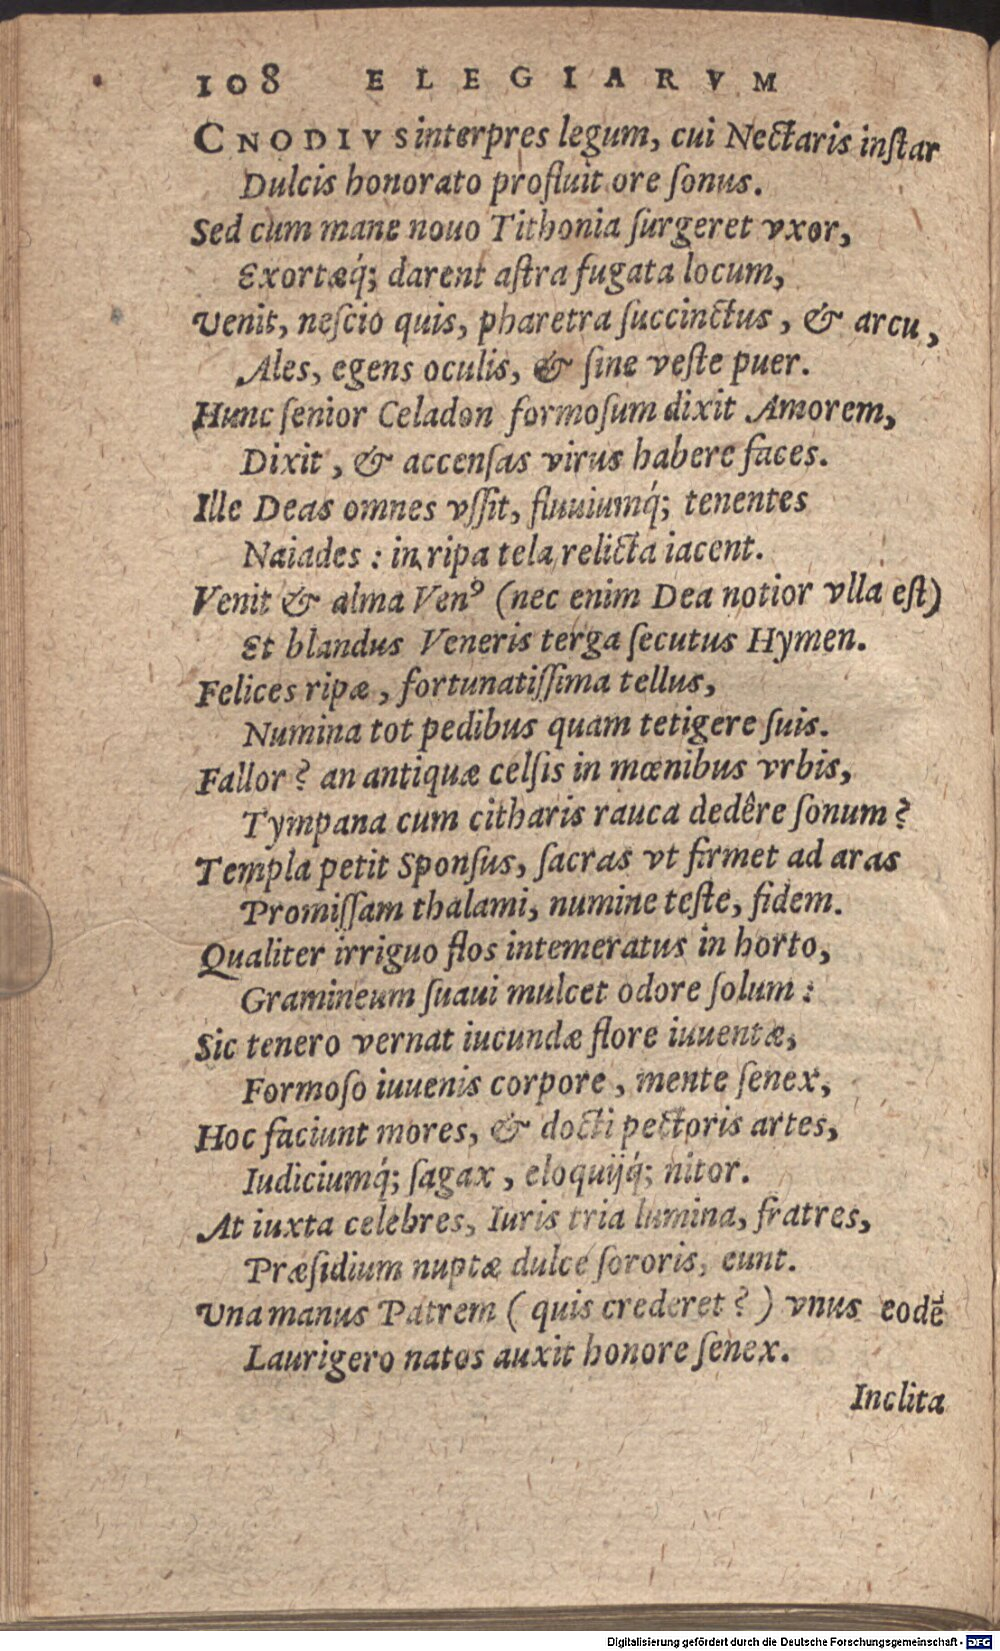 108 ELEGIARVM
CNODIVS interpres legum, cui Nectaris inſtar
Dulcis honorato profluit ore ſonus.
Sed cum mane nouo Tithonia ſurgeret vxor,
Exortæq́; darent aſtra fugata locum,
Venit, neſcio quis, pharetra ſuccinctus, & arcu,
Ales, egens oculis, & ſine veſte puer.
Hunc ſenior Celadon formoſum dixit Amorem,
Dixit, & accenſas virus habere faces.
Ille Deas omnes vſſit, fluuiumq́; tenentes
Naiades: in ripa tela relicta iacent.
Venit & alma Venꝰ (nec enim Dea notior vlla eſt)
Et blandus Veneris terga ſecutus Hymen.
Felices ripæ, fortunatiſſima tellus,
Numina tot pedibus quam tetigere ſuis.
Fallor? an antiquæ celſis in mœnibus vrbis,
Tympana cum citharis rauca dedêre ſonum?
Templa petit Sponſus, ſacras vt firmet ad aras
Promiſſam thalami, numine teſte, fidem.
Qualiter irriguo flos intemeratus in horto,
Gramineum ſuaui mulcet odore ſolum:
Sic tenero vernat iucundæ flore iuuentæ,
Formoſo iuuenis corpore, mente ſenex,
Hoc faciunt mores, & docti pectoris artes,
Iudiciumq́; ſagax, eloquijq́; nitor.
At iuxta celebres, Iuris tria lumina, fratres,
Præſidium nuptæ dulce ſororis, eunt.
Vna manus Patrem (quis crederet?) vnus eodē
Laurigero natos auxit honore ſenex.
Inclita
Digitalisierung gefördert durch die Deutsche Forschungsgemeinschaft - DFG